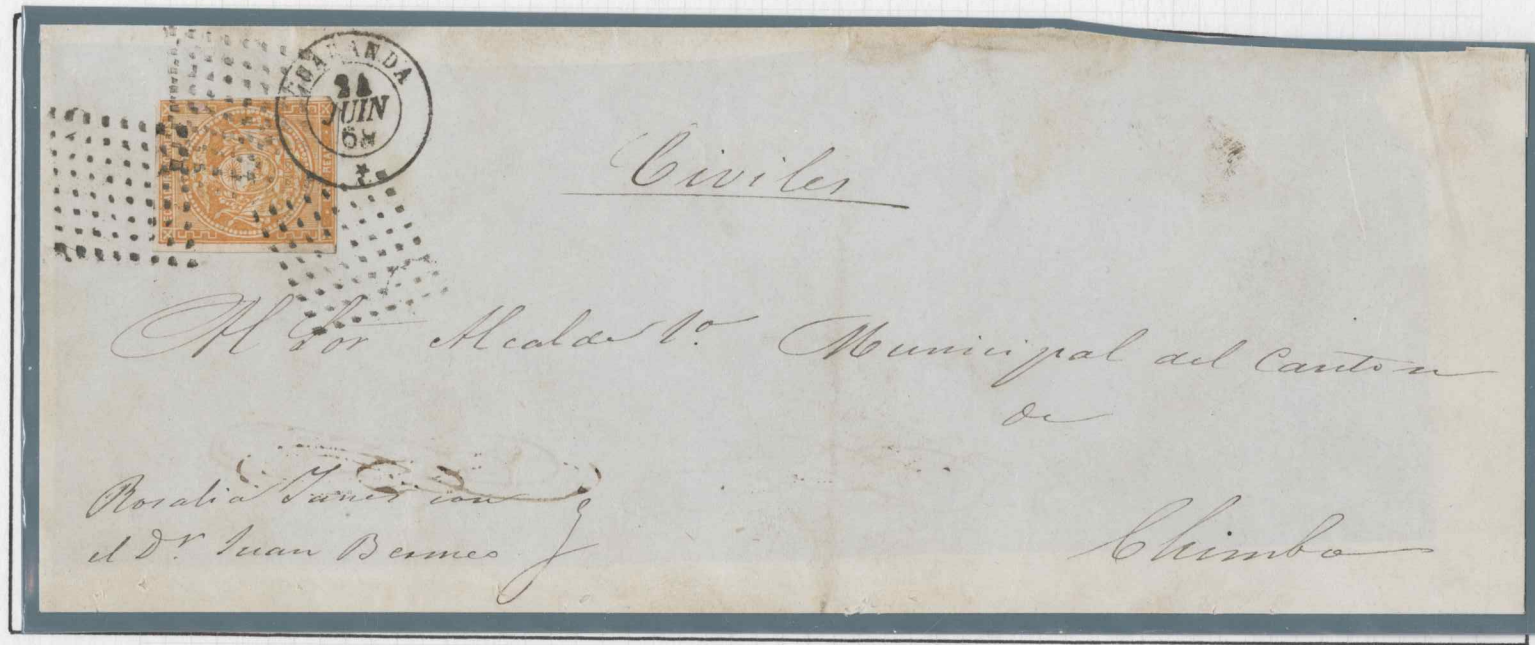 GUARANDA
24
JUIN
68
Civiles
Al Sor Alcalde 1o. Municipal del Canton
de
Rosalia con
el Dr. Juan
Chimbo